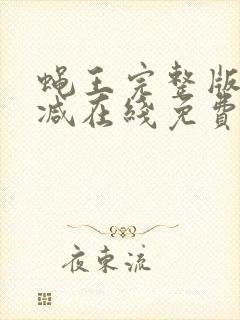 蝇王完整版
减在綫免費
夜東流